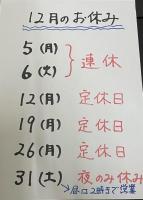 12月のお休み
5(月)
6(火) } 連休
12(月) 定休日
19(月) 定休日
26(月) 定休日
31(土) 夜のみ休み
↳昼は2時まで営業